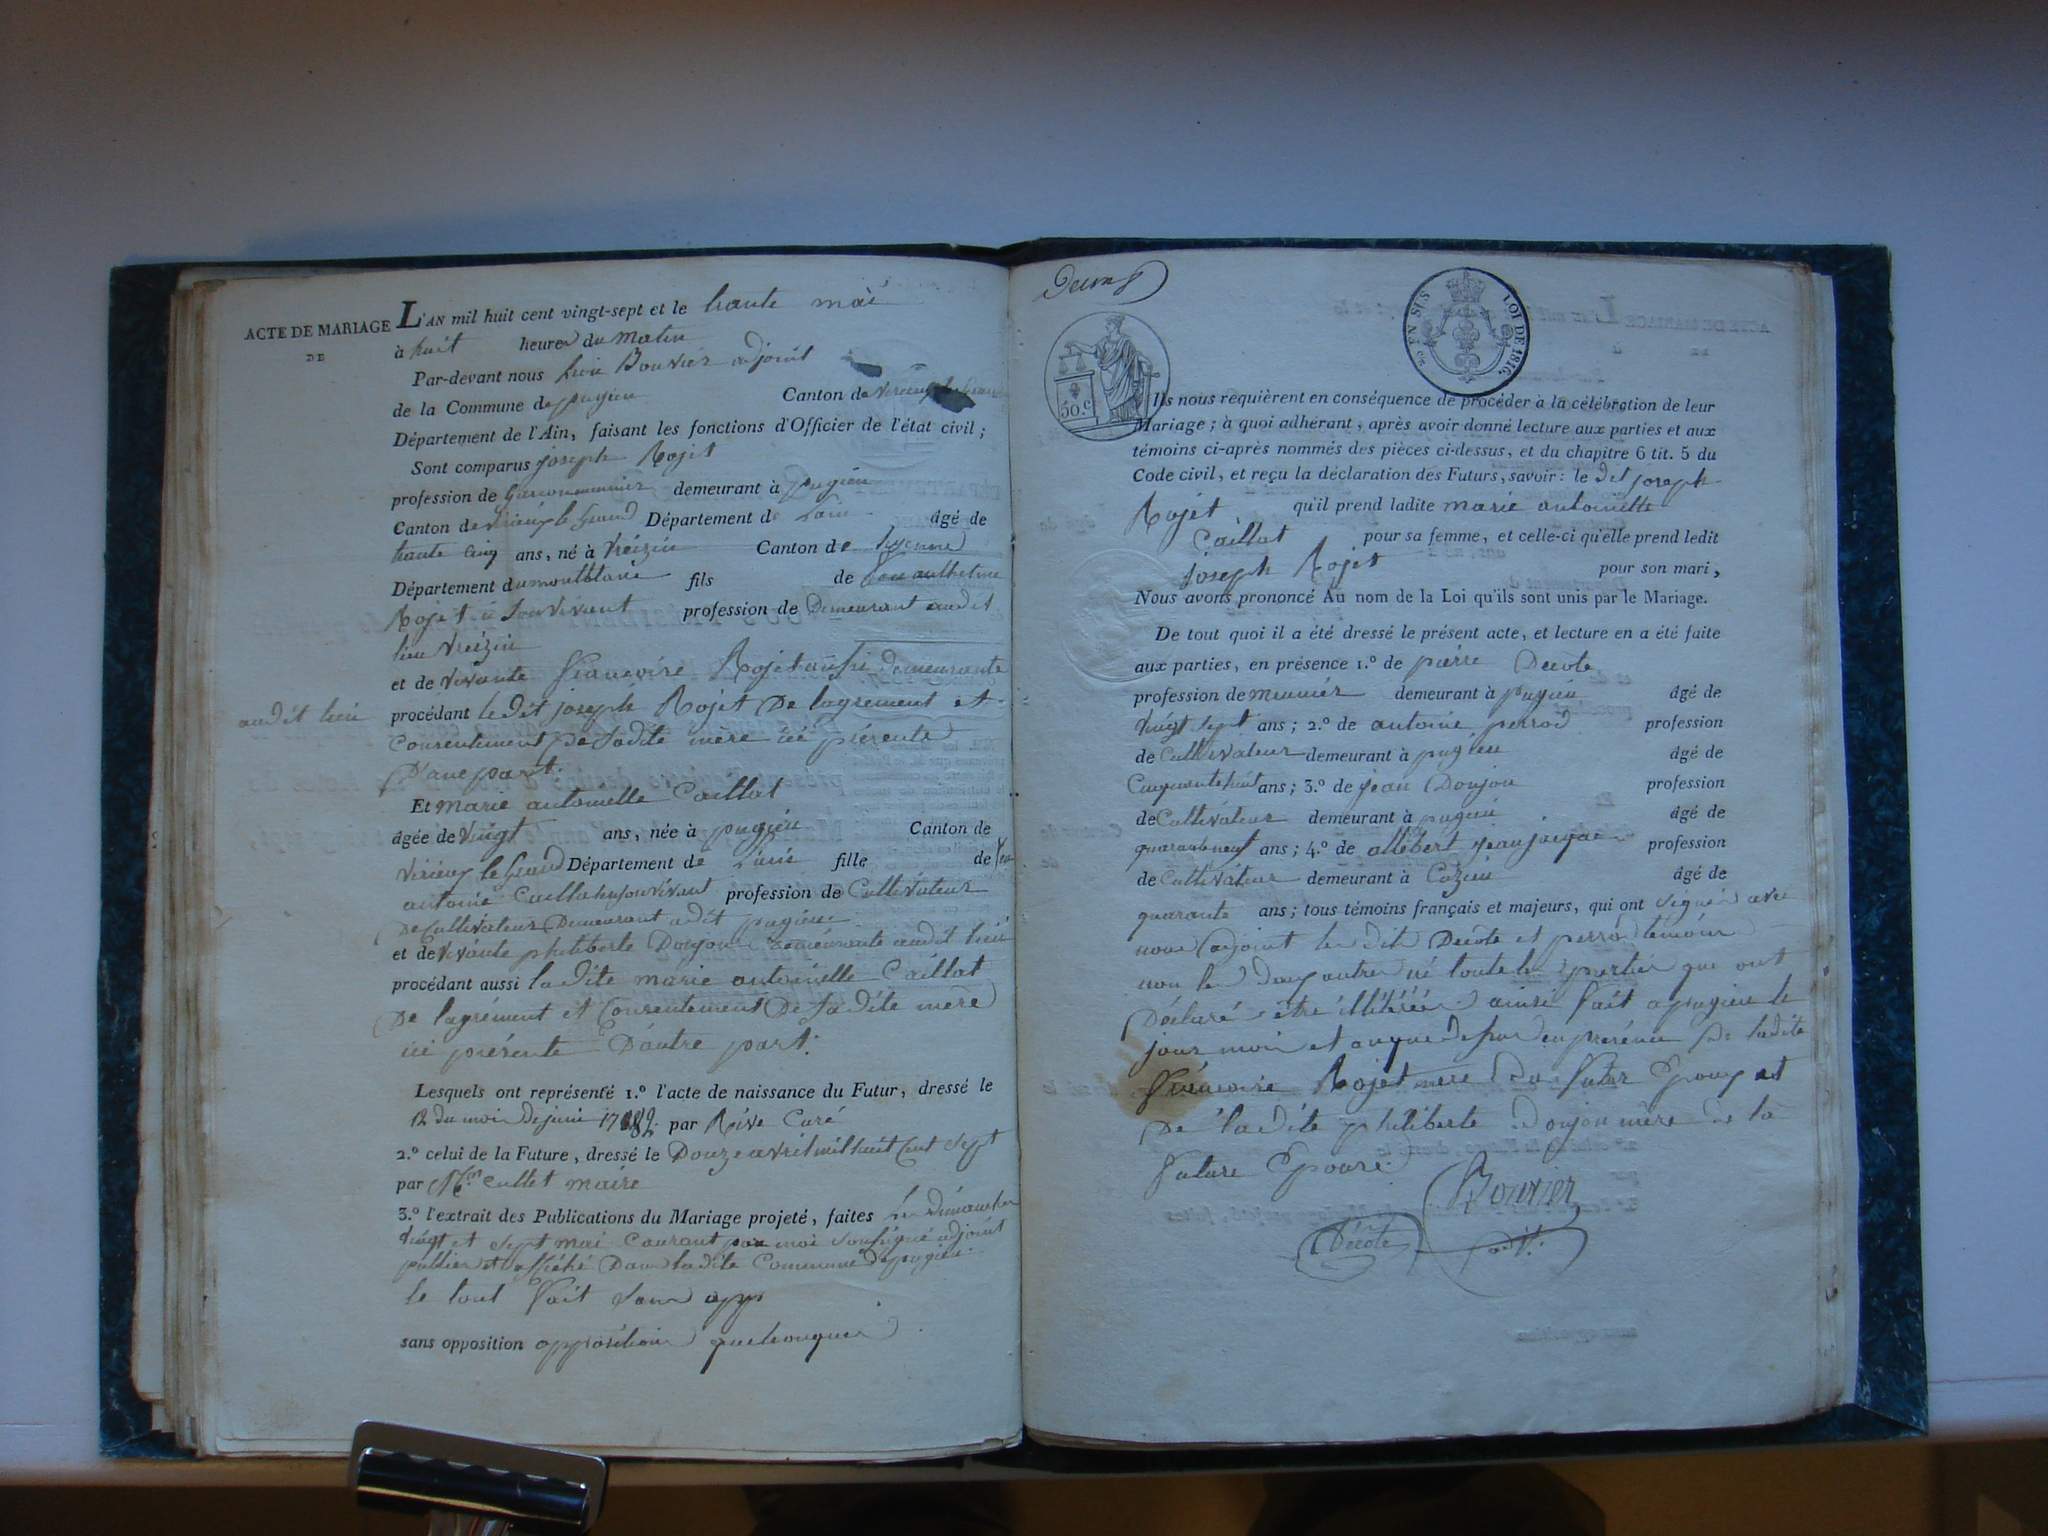 ACTE DE MARIAGE
DE
L'AN mil huit cent vingt-sept et le trante mai
à huit heures du matin
Par-devant nous Bouvier adjoint
de la Commune de pugieu Canton de virieux le Grand
Département de l'Ain, faisant les fonctions d'Officier de l'état civil ;
Sont comparus joseph Rojet
profession de demeurant à pugieu
Canton de virieux le Grand Département de Lain âgé de
trante cinq ans, né à Canton de
Département du montblanc fils de
Rojet à Son vivant profession de Demeurant audit
lieu
et de vivante Rojet aussi demeurante
audit lieu
procédant le dit joseph Rojet De lagrement et
Consentement De Sadite mère ici présente
D'une part.
Et marie antoinette Caillat
âgée de vingt ans, née à pugieu Canton de
virieux le Grand Département de fille de feu
antoine Caillat a Son vivant profession de Cultivateur
De Cultivateur Demeurant audit pugieu
et de vivante philiberte Donjon demeurante audit lieu
procédant aussi la dite marie antoinette Caillat
De lagrément et Consentement De Sadite mère
ici présente D'autre part.
Lesquels ont représenté 1.º l'acte de naissance du Futur, dressé le
12 du mois de juin 1782 par Curé
2.º celui de la Future, dressé le Douze avril mil huit Cent Sept
par Cullet maire
3.º l'extrait des Publications du Mariage projeté, faites Les Dimanches
vingt et Sept mai Courant par moi Soussigné adjoint
publies et affiché Dans ladite Commune De pugieu
le tout fait Sans opp
sans opposition opposition quelconques
EN SUS
LOI DE 1816.
50.c
Ils nous requièrent en conséquence de procéder à la célébration de leur
Mariage ; à quoi adhérant, après avoir donné lecture aux parties et aux
témoins ci-après nommés des pièces ci-dessus, et du chapitre 6 tit. 5 du
Code civil, et reçu la déclaration des Futurs, savoir : le dit joseph
Rojet qu'il prend ladite marie antoinette
Caillat pour sa femme, et celle-ci qu'elle prend ledit
joseph Rojet pour son mari,
Nous avons prononcé Au nom de la Loi qu'ils sont unis par le Mariage.
De tout quoi il a été dressé le présent acte, et lecture en a été faite
aux parties, en présence 1.º de pierre Decote
profession de meunier demeurant à pugieu âgé de
vingt Sept ans ; 2.º de antoine perrod profession
de Cultivateur demeurant à pugieu âgé de
Cinquante huit ans ; 3.º de jean Donjon profession
de Cultivateur demeurant à pugieu âgé de
quarante neuf ans ; 4.º de allebert jean jacque profession
de Cultivateur demeurant à Cozieu âgé de
quarante ans ; tous témoins français et majeurs, qui ont signé avec
nous adjoint les dits Decote et perrod témoins
non les deux autres ni toutes les parties que ont
Déclaré être illitérés ainsi fait a pugieu le
jour mois et an que dessus en présence De ladite
Rojet mere du futur Epoux et
De ladite philiberte Donjon mère de la
future Epouse.
Bouvier
Décote
adjt.